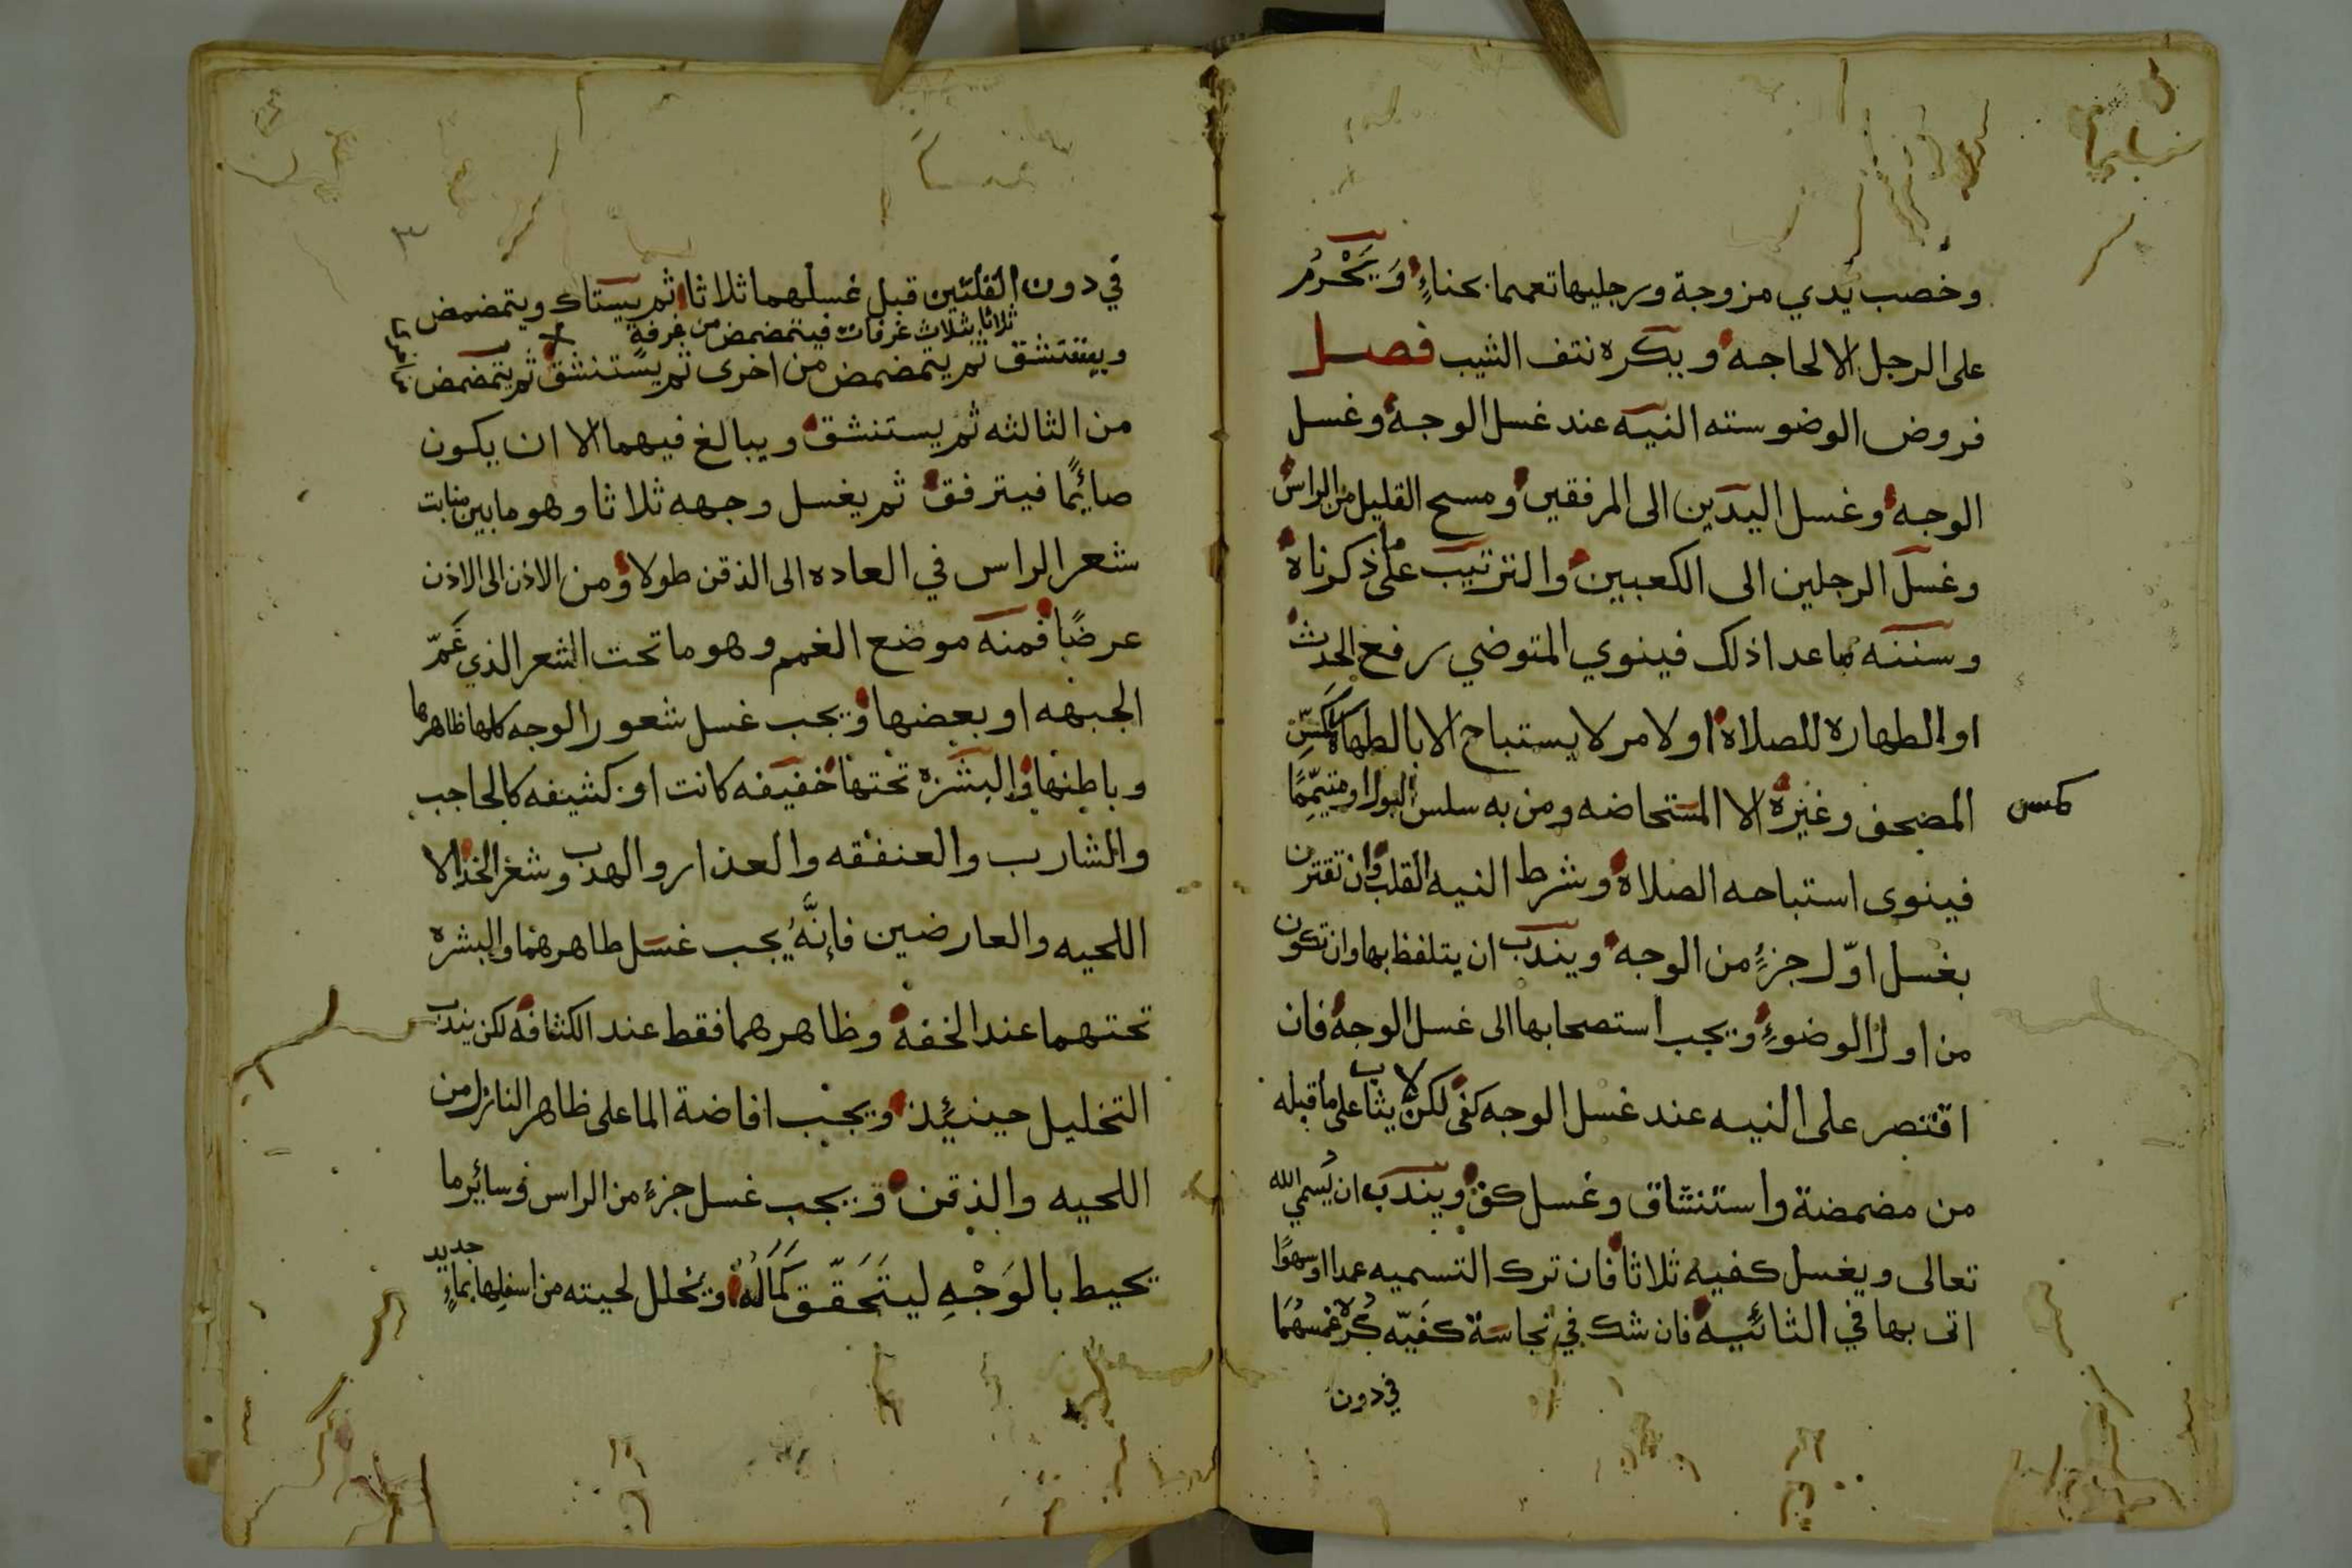 وخضب يدي مزوجة ورجليها تعميما بحناءٍ وَيَحْرُم
على الرجل الا لحاجه ويكره نتف الشيب فصل
فروض الوضو سته النيه عند غسل الوجه وغسل
الوجه وغسل اليدين الى المرفقين ومسح القليل من الراس
وغسل الرجلين الى الكعبين والترتيب على ما ذكرناه
وسننه ما عدا ذلك فينوي المتوضي رفع الحدث
او الطهاره للصلاه او لامر لا يستباح الا بالطهاره كمسِّ
كمس
المصحف وغيره الا المستحاضه ومن به سلس البول او متيمِّمًا
فينوى استباحه الصلاه وشرط النيه القلب وان تقترن
بغسل اوّل جزءٍ من الوجه ويندب ان يتلفظ بها وان تكون
من اول الوضوءِ ويجب استصحابها الى غسل الوجه فان
اقتصر على النيه عند غسل الوجه كفى لكن لا يثاب على ما قبله
من مضمضة واستنشاق وغسل كف ويندب ان يُسمي الله
تعالى ويغسل كفيه ثلاثا فان ترك التسميه عمدا او سهوًا
اتى بها في اثنائيه فان شك في نجاسة كفيّه كُره غمسهُمَا
في دون
٣
في دون القلتين قبل غسلهما ثلاثا ثم يستاك ويتمضمض
ثلاثا بثلاث غرفات فيتمضمض من غرفةٍ
ويستنشق ثم يتمضمض من اخرى ثم يستنشق ثم يتمضمض
من الثالثه ثم يستنشق ويبالغ فيهما الا ان يكون
صائمًا فيترفق ثم يغسل وجهه ثلاثا وهو ما بين منابت
شعر الراس في العاده الى الذقن طولا ومن الاذن الى الاذن
عرضًا فمنه موضع الغمم وهو ما تحت الشعر الذي غَمّ
الجبهه او بعضها ويجب غسل شعور الوجه كلها ظاهرها
وباطنها والبشره تحتها خفيفه كانت او كثيفه كالحاجب
والشارب والعنفقه والعذار والهدب وشعر الخد الا
اللحيه والعارضين فإنَّهُ يجب غسل ظاهرهما والبشره
تحتهما عند الخفه وظاهرهما فقط عند الكثافه لكن يندب
التخليل حينئيذ ويجب افاضة الما على ظاهر النازل من
اللحيه والذقن ويجب غسل جزءٍ من الراس وسائر ما
يحيط بالوَجْهِ ليتَحَقّق كَمَالُهُ ويخلل لحيته من اسفلِها بماءٍ جديد